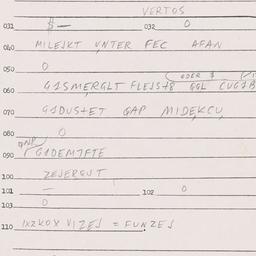 VERTOS
031 $ — 032 0
040 MILEJKT UNTER FEC AFAN
050 0
ODER $
060 G1SMERGLT FLEJS+8 GGL CUG1B
070 G1DUS+ET GAP MIDEKCU
080 0
090 G1DEM7FTE
100 ZEJERGUT
101 — 102 0
103 0
110 1XZKOX VIZEJ = FUNZEJ